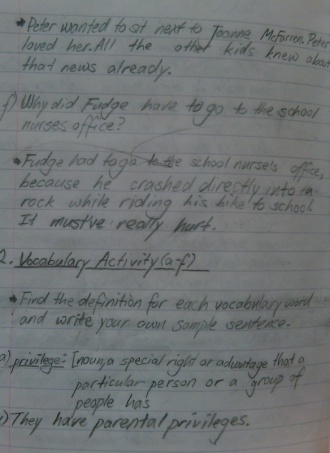 • Peter wanted to sit next to Joanne McFarren. Peter
loved her. All the other kids knew about
that news already.
f) Why did Fudge have to go to the school
nurses office?
• Fudge had to go to the school nurse's office,
because he crashed directly into a
rock while riding his bike to school.
It must've really hurt.
2. Vocabulary Activity (a-f)
• Find the definition for each vocabulary word
and write your own sample sentence.
a) privilege: [noun, a special right or advantage that a
particular person or a group of
people has
) They have parental privileges.